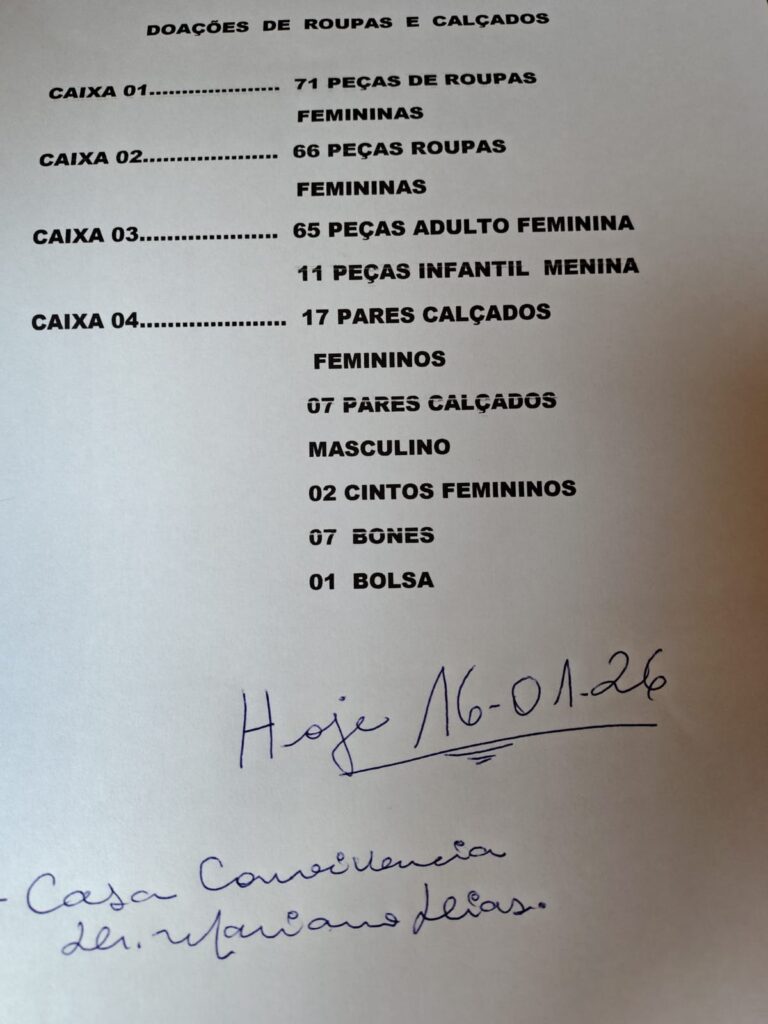 DOAÇÕES DE ROUPAS E CALÇADOS
CAIXA 01................... 71 PEÇAS DE ROUPAS
FEMININAS
CAIXA 02................... 66 PEÇAS ROUPAS
FEMININAS
CAIXA 03.................... 65 PEÇAS ADULTO FEMININA
11 PEÇAS INFANTIL MENINA
CAIXA 04..................... 17 PARES CALÇADOS
FEMININOS
07 PARES CALÇADOS
MASCULINO
02 CINTOS FEMININOS
07 BONES
01 BOLSA
Hoje 16-01-26
- Casa Convivencia
Mariano